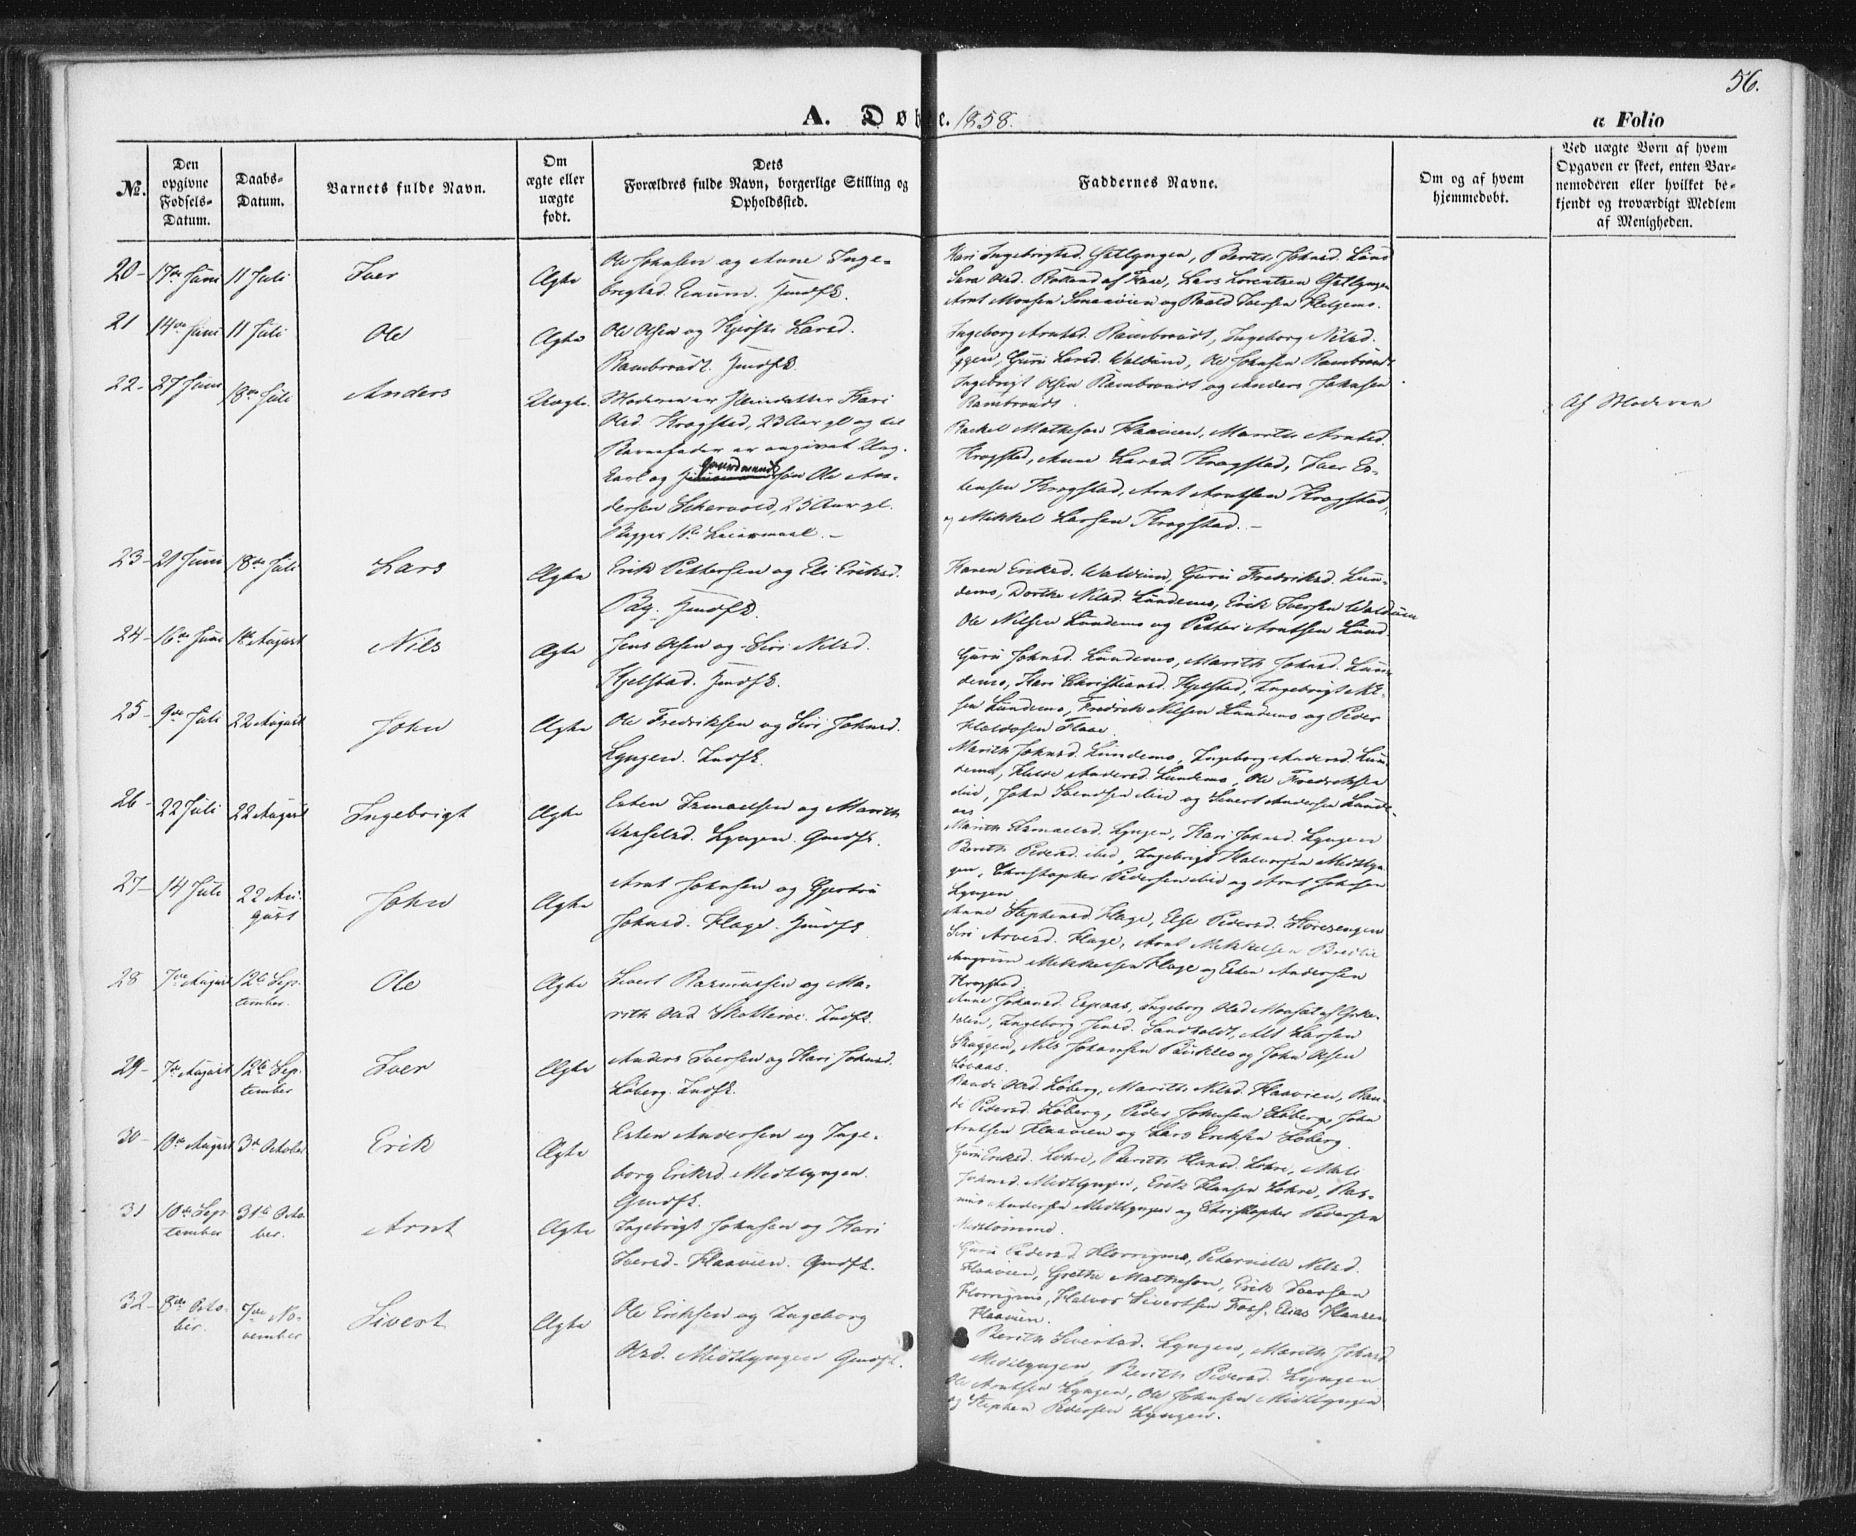 56.
A. Døbte. 1858.
a Folio
№.
Den opgivne Fødsels-Datum.
Daabs-Datum.
Barnets fulde Navn.
Om ægte eller uægte født.
Dets Forældres fulde Navn, borgerlige Stilling og Opholdssted.
Faddernes Navne.
Om og af hvem hjemmedøbt.
Ved uægte Børn af hvem Opgaven er skeet, enten Barnemoderen eller hvilket bekjendt og troværdigt Medlem af Menigheden.
20 - 17de Juni 11 Juli Iver Ægte
Ole Johnsen og Anne Inge-
brigtsd. Gmdfk.
Kari Ingebrigtsd. Berith Johnsd. Lund
Lars Lorentsen
Arnt Monsen og Iversen
21 14de Juni 11 Juli Ole Ægte
Ole Olsen og Kjersti Larsd.
Rambraadt. Gmdfk.
Ingeborg Arntsd. Rambraadt, Ingeborg Nilsd.
Eggen, Guru Larsd. Ole Johnsen Rambraadt
Ingebrigt Olsen Rambraadt og Anders Johnsen
Rambraadt.
22 - 27 Juni 18de Juli Anders Uægte.
Moderen er Kari
Olsd. Krogstad, 23 Aar gl og til
Barnefader er angivet Ung-
karl og Gaardmands søn Ole An-
dersen 25 Aar gl.
Begges 1ste Leiermaal. -
Af Moderen
Rachel Mathesen Haavien, Marith Arntsd.
Krogstad, Anne Larsd. Krogstad, Iver Es-
tensen Krogstad, Arnt Arntsen Krogstad,
og Mikkel Larsen Krogstad. -
23 - 21 Juni 18de Juli Lars Ægte
Erik Pettersen og Eli Eriksd.
Gmdfk.
Karen Eriksd. Guru Fredriksd. Lun-
demo, Dorthe Nilsd. Lundemo, Erik Iversen
Ole Nilsen Lundemo og Petter Arntsen Lund.
24 - 16de Juni 1ste August Nils Ægte
Jens Olsen og Siri Nilsd.
Kjelstad. Gmdfk.
Guru Johnsd. Lundemo, Marith Johnsd. Lun-
demo, Kari Christiansd. Kjelstad, Ingebrigt Nil-
sen Lundemo, Fredrik Nilsen Lundemo og Peder
Haldosen Flaae.
25 - 9de Juli 22 August John Ægte
Ole Fredriksen og Siri Johnsd.
Lyngen. Indfk.
Marith Johnsd. Lundemo, Ingeborg Andersd. Lun-
demo, Andersd. Lundemo, Ole Fredriksen
ibid, John Svendsen ibid og Sivert Andersen
26 - 22 Juli 22 August Ingebrigt Ægte
Esten Ismaelsen og Marith
Lyngen. Gmdfk.
Marith Ismaelsd. Lyngen, Kari Johnsd. Lyngen
Berith Pedersd. ibid, Ingebrigt Halvorsen Midtlyn-
gen, Christopher Pedersen ibid og Arnt Johnsen
Lyngen
27 - 14 Juli 22 Au-
gust John Ægte
Arnt Johnsen og Gjertru
Johnsd. Flage. Gmdfk
Anne Stephensd. Flage, Else Pedersd. Storesengen
Siri Arntsd. Flage, Arnt Mikkelsen
Mikkelsen Flage og Esten Andersen
Krogstad.
28 7de August 12te Sep-
tember. Ole Ægte
Sivert Rasmussen og Ma-
rith Olsd Skotteroe. Indfk.
Anne Johansd. Espaas, Ingeborg Olsd
Ingeborg Jensd. Larsen
Skaggen, Nils Johansen og John Olsen
29 - 7de August 12te Sep-
tember Iver Ægte
Anders Iversen og Kari Johnsd.
Løberg. Indfk.
Olsd. Løberg, Marith Nilsd. Haavien, Ran-
di Pedersd. Løberg, Peder Johnsen Løberg, John
Arntsen Haavien og Lars Eriksen Løberg.
30 - 10de August 3de October Erik Ægte
Esten Andersen og Inge-
borg Eriksd. Midtlyngen.
Gmdfk.
Guru Eriksd. Lohre, Berith Hansd. Lohre, Mali
Johnsd. Midtlyngen, Erik Hansen Lohre, Ras-
mus Andersen Midtlyngen og Christopher Pedersen
31 10de Sep-
tember 31te Octo-
ber. Arnt Ægte
Ingebrigt Johnsen og Kari
Iversd. Haavien. Gmdfk.
Guru Pedersd. Nilsd.
Haavien, Grethe Mathesen, Erik Iversen
Halvor Sivertsen Foss, Elias Hansen
Haavien.
32 - 8de Octo-
ber. 7de No-
vember Sivert Ægte
Ole Eriksen og Ingeborg
Olsd. Midtlyngen Gmdfk.
Berith Sivertsd. Lyngen, Marith Johnsd
Midtlyngen, Berith Pedersd. Lyngen
Ole Arntsen Lyngen, Ole Johnsen Midtlyngen
og Stephen Pedersen Lyngen.